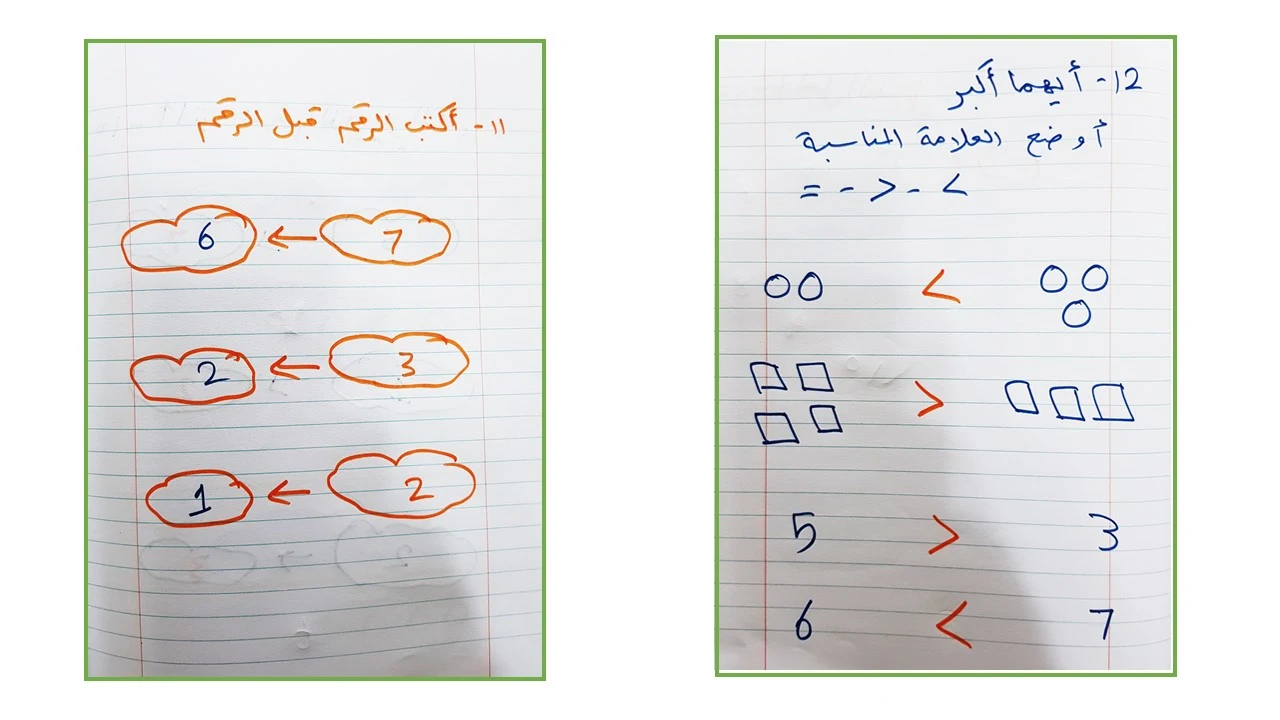 ١١- أكتب الرقم قبل الرقم
6 ← 7
2 ← 3
1 ← 2
12- أيهما أكبر
أو ضع العلامة المناسبة
= - > - <
<
>
5 > 3
6 < 7